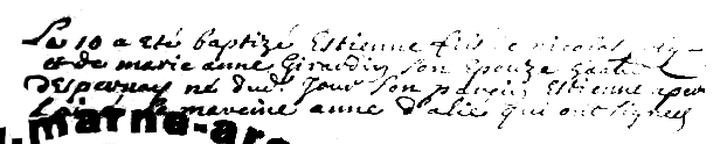 Le 10 a eté baptizé Estienne fils de nicolas
et de marie anne Girardin son epouze
Despernay né dud. Jour son parein Estienne
la mareine anne d'alié qui ont signés
marne-arc